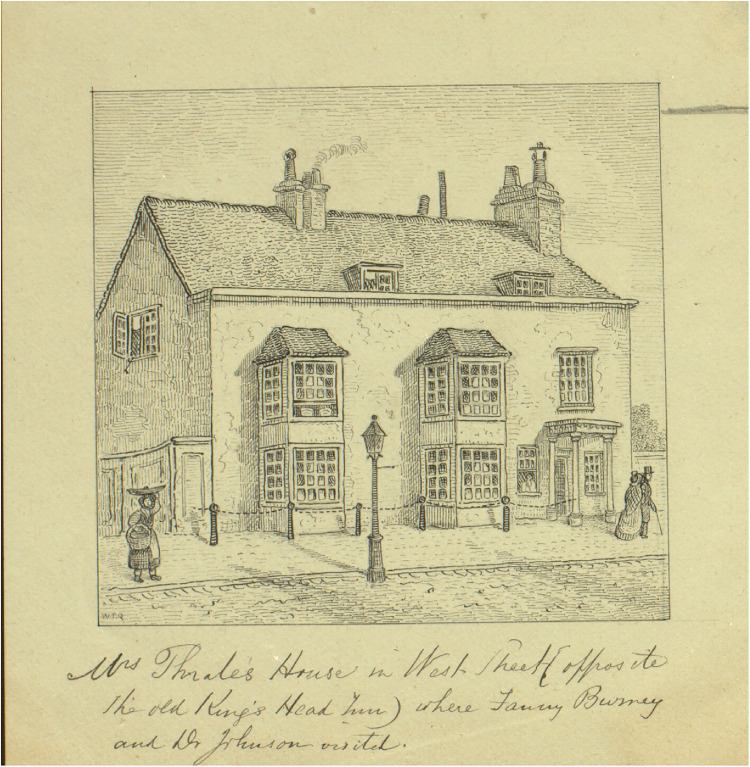 W.T.Q
Mrs Thrale's House in West Street (opposite
the old King's Head Inn) where Fanny Burney
and Dr Johnson visited.